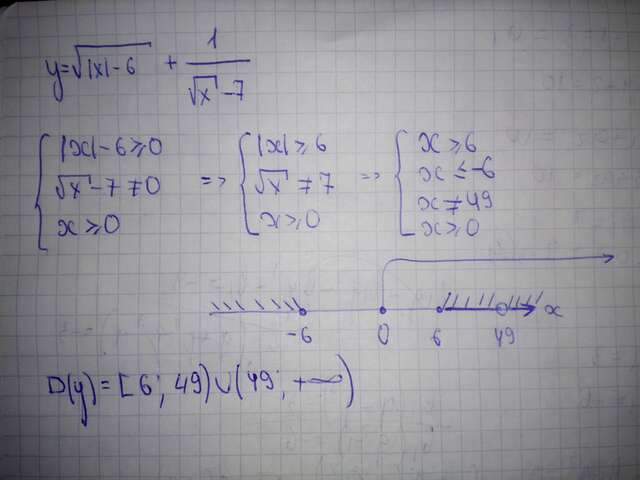 y=√|x|-6 + 1/(√x-7)
{ |x|-6≥0 <=> { |x|≥6 <=> { x≥6
√x-7≠0 √x≠7 x≤-6
x≥0 x≥0 x≠49
x≥0
-6 0 6 49 x
D(y)=[6; 49)∪(49; +∞)